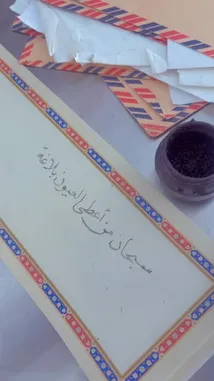 سبحان من أعطى العيون بلاغة